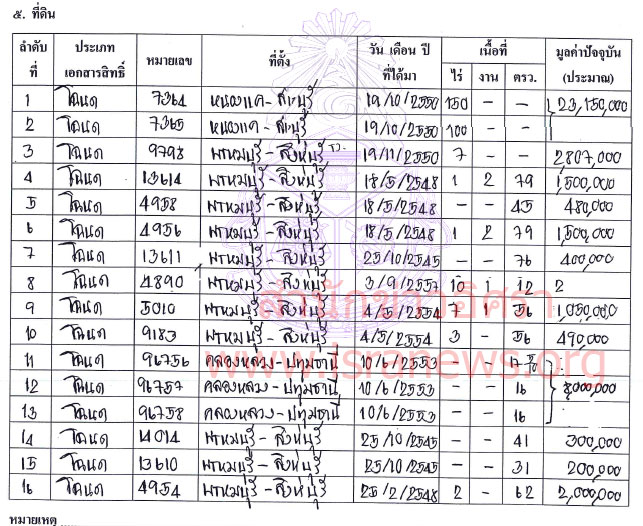 ๕. ที่ดิน
ลำดับที่ ประเภทเอกสารสิทธิ์ หมายเลข ที่ตั้ง วัน เดือน ปี ที่ได้มา เนื้อที่ ไร่ งาน ตรว. มูลค่าปัจจุบัน (ประมาณ)
1 โฉนด 7364 หนองแค - สระบุรี 19/10/2550 150 - - 23,150,000
2 โฉนด 7365 หนองแค - สระบุรี 19/10/2550 100 - -
3 โฉนด 9798 พรหมบุรี - สิงห์บุรี 19/11/2550 7 - - 2,807,000
4 โฉนด 13614 พรหมบุรี - สิงห์บุรี 18/5/2548 1 2 79 1,500,000
5 โฉนด 4958 พรหมบุรี - สิงห์บุรี 18/5/2548 - - 45 480,000
6 โฉนด 4956 พรหมบุรี - สิงห์บุรี 18/5/2548 1 2 79 1,500,000
7 โฉนด 13611 พรหมบุรี - สิงห์บุรี 25/10/2545 - - 76 400,000
8 โฉนด 4890 พรหมบุรี - สิงห์บุรี 3/9/2557 10 1 12 2
9 โฉนด 5010 พรหมบุรี - สิงห์บุรี 4/5/2554 7 1 56 1,050,000
10 โฉนด 9183 พรหมบุรี - สิงห์บุรี 4/5/2554 3 - 56 490,000
11 โฉนด 96756 คลองหลวง - ปทุมธานี 10/6/2553 - -
12 โฉนด 96757 คลองหลวง - ปทุมธานี 10/6/2553 - - 16 8,000,000
13 โฉนด 96758 คลองหลวง - ปทุมธานี 10/6/2553 - - 16
14 โฉนด 14014 พรหมบุรี - สิงห์บุรี 25/10/2545 - - 41 300,000
15 โฉนด 13610 พรหมบุรี - สิงห์บุรี 25/10/2545 - - 31 200,000
16 โฉนด 4954 พรหมบุรี - สิงห์บุรี 25/2/2548 2 - 62 2,000,000
หมายเหตุ
สำนักข่าวอิศรา
www.isranews.org